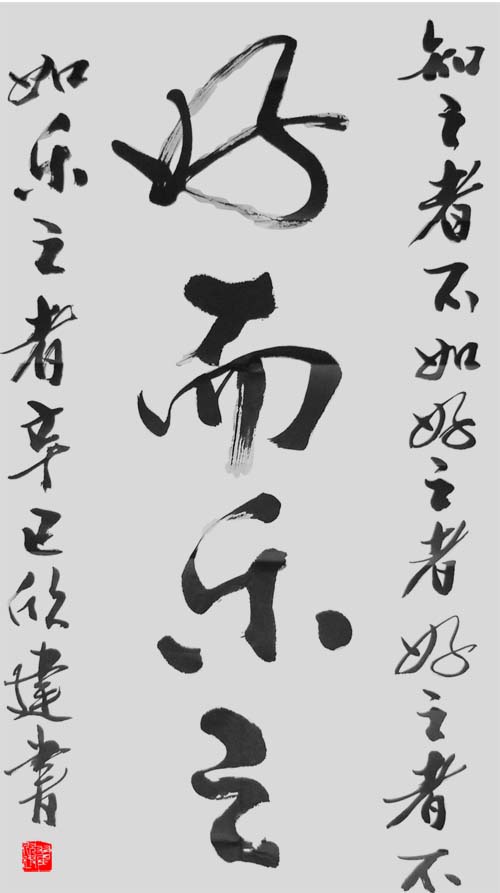 好而乐之
知之者不如好之者好之者不
如乐之者辛巳欣建書